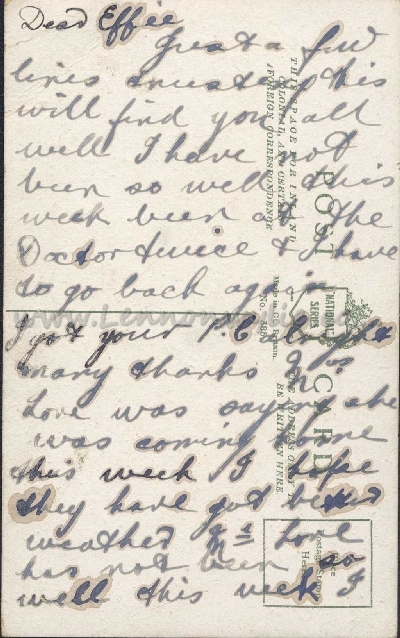 Dear Effie
Just a few
lines trusting this
will find you all
well I have not
been so well this
week been at the
Doctor twice & I have
to go back again
I got your P.C. alright
many thanks Mrs
Love was saying she
was coming home
this week I hope
they have got better
weather Mrs Love
has not been so
well this week I
THIS SPACE FOR INLAND
COLONIAL AND CERTAIN
FOREIGN CORRESPONDENCE
POST CARD
Made in Gt. Britain.
No.
NATIONAL
SERIES
THE ADDRESS ONLY TO
BE WRITTEN HERE
Postage Stamp